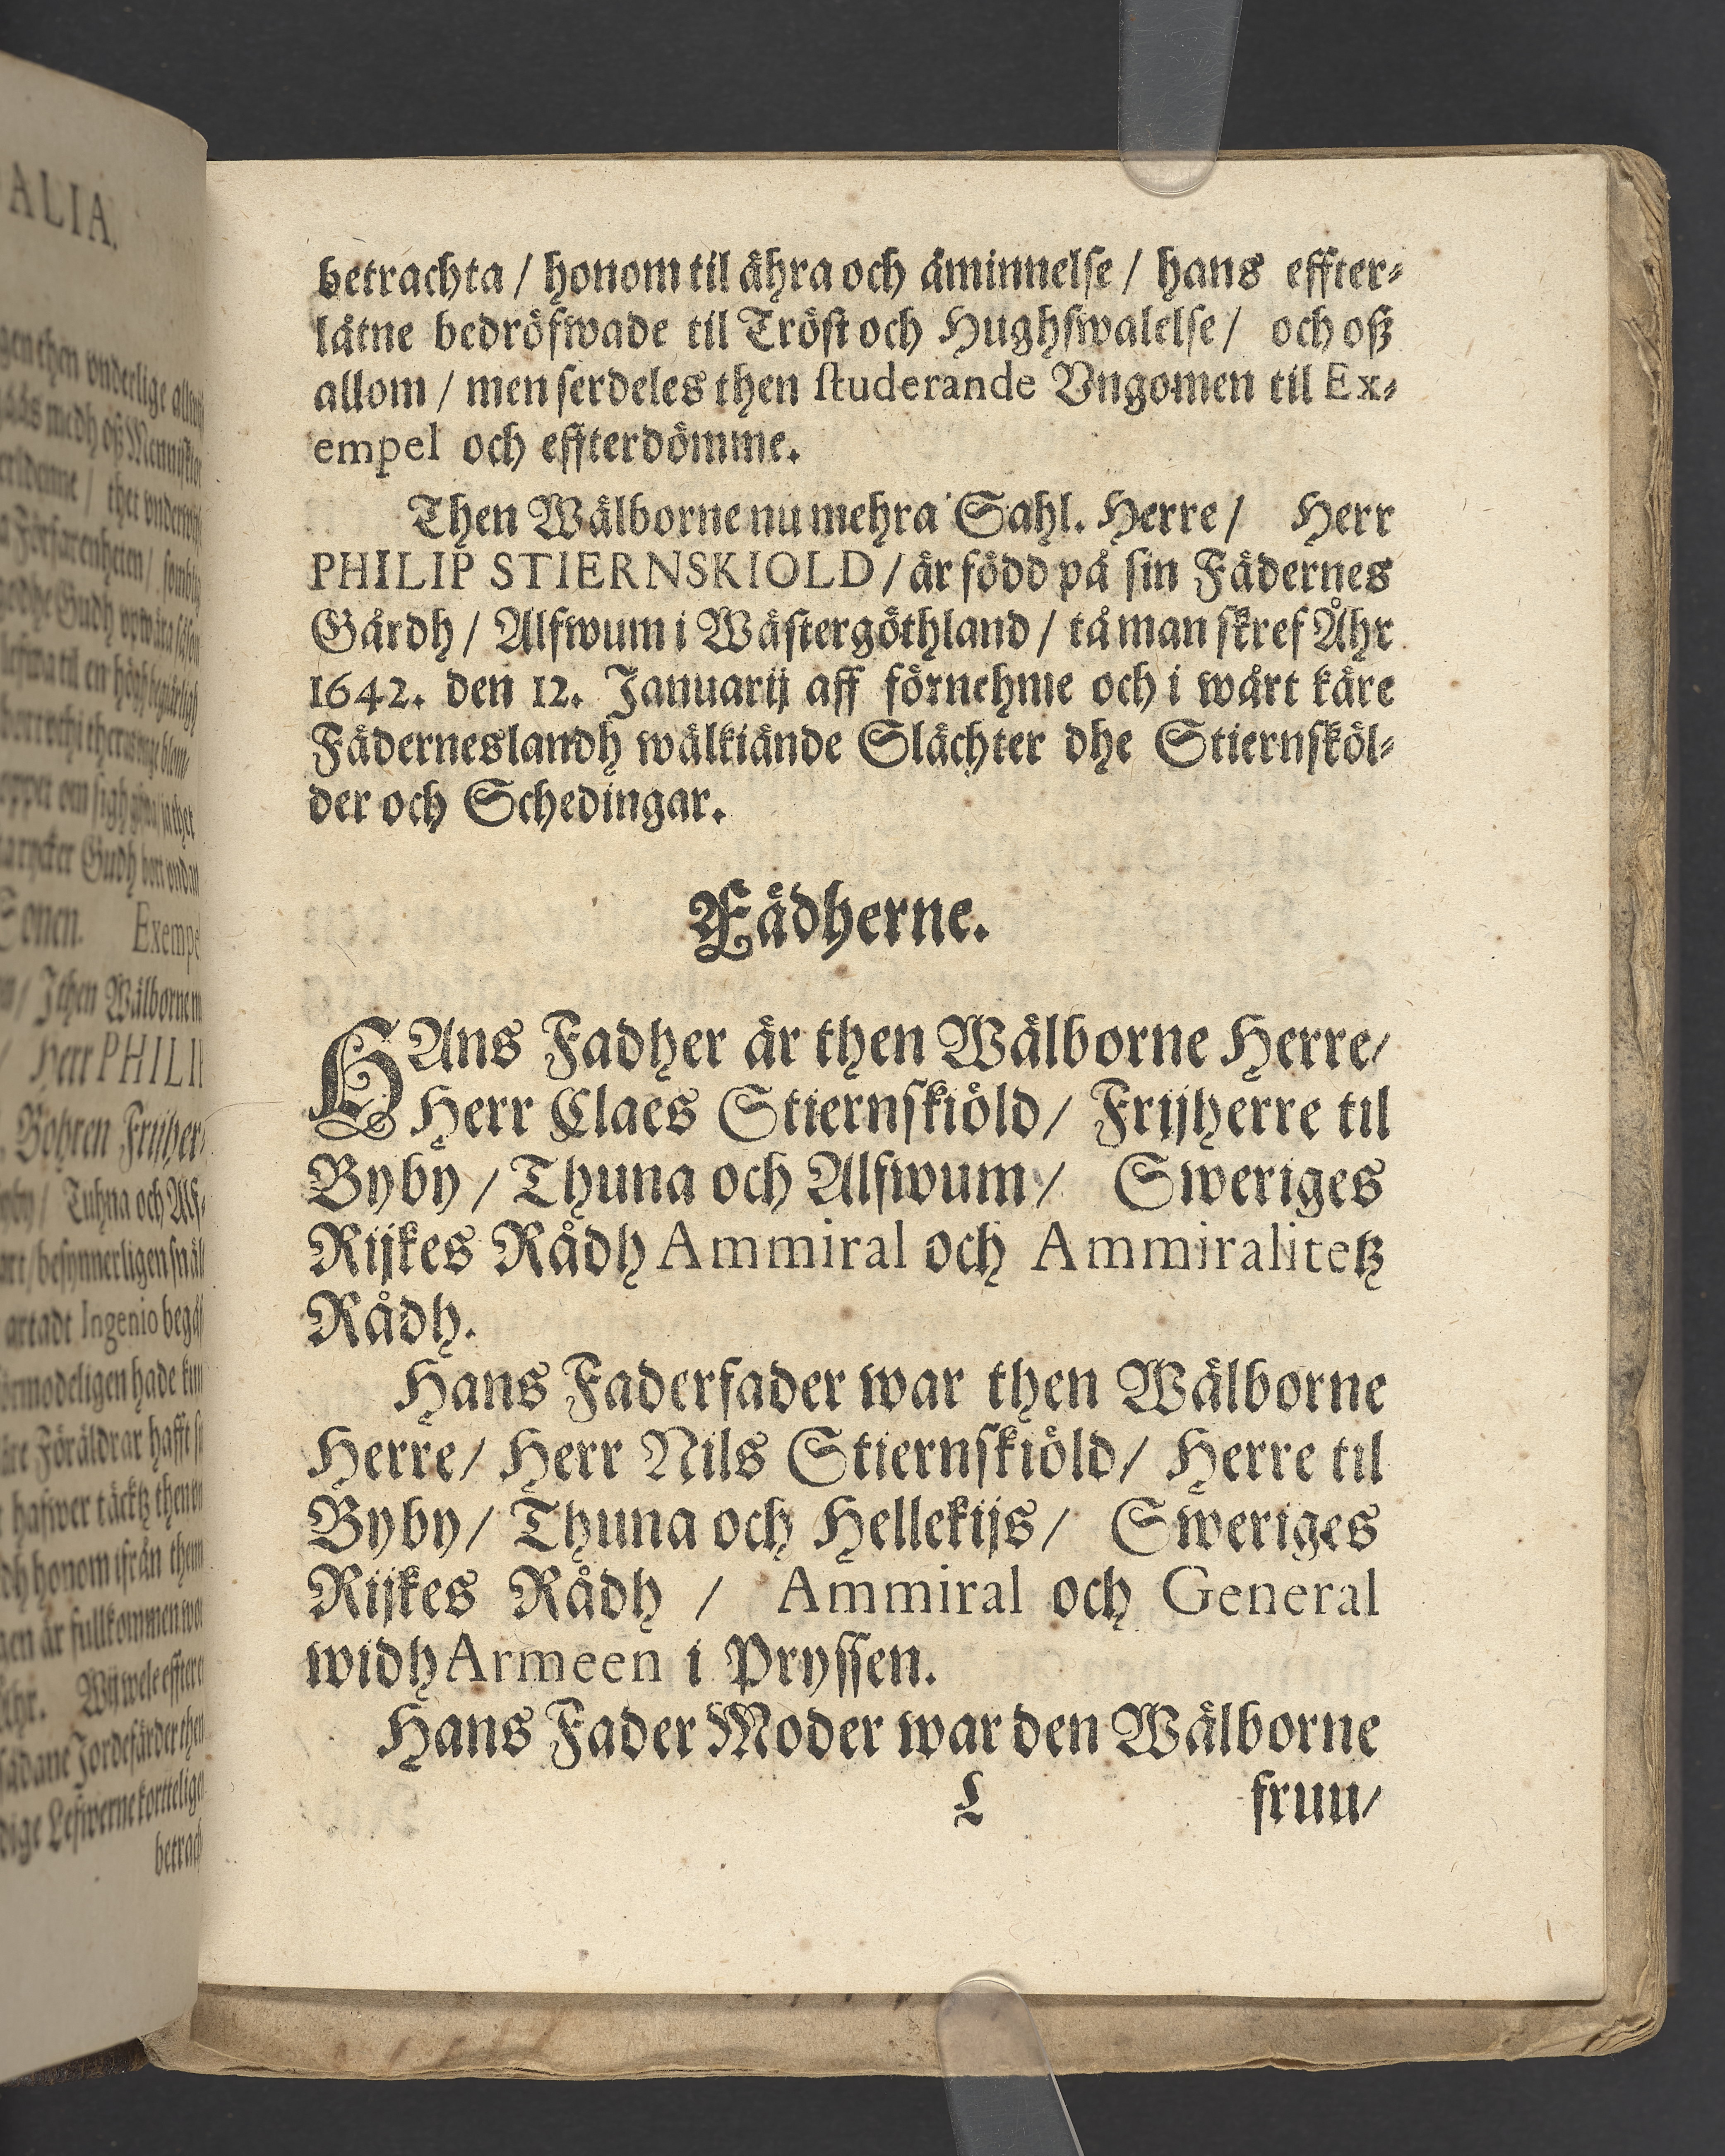 ALIA.
betrachta / honom til ähra och åminnelse / hans effter-
låtne bedröfwade til Tröst och Hughswalelse / och oß
allom / men serdeles then studerande Vngomen til Ex-
empel och effterdömme.
Then Wälborne nu mehra Sahl. Herre / Herr
PHILIP STIERNSKIOLD / är född på sin Fädernes
Gårdh / Alfwum i Wästergöthland / tå man skref Åhr
1642. den 12. Januarij aff förnehme och i wårt käre
Fäderneslandh wälkiände Slächter dhe Stiernsköl-
der och Schedingar.
Fädherne.
HAns Fadher är then Wälborne Herre/
Herr Claes Stiernskiöld/ Frijherre til
Byby / Thuna och Alfwum / Sweriges
Rijkes Rådh Ammiral och Ammiralitetz
Rådh.
Hans Faderfader war then Wälborne
Herre/ Herr Nils Stiernskiöld/ Herre til
Byby/ Thuna och Hellekijs/ Sweriges
Rijkes Rådh / Ammiral och General
widh Armeen i Pryssen.
Hans Fader Moder war den Wälborne
L fruu/